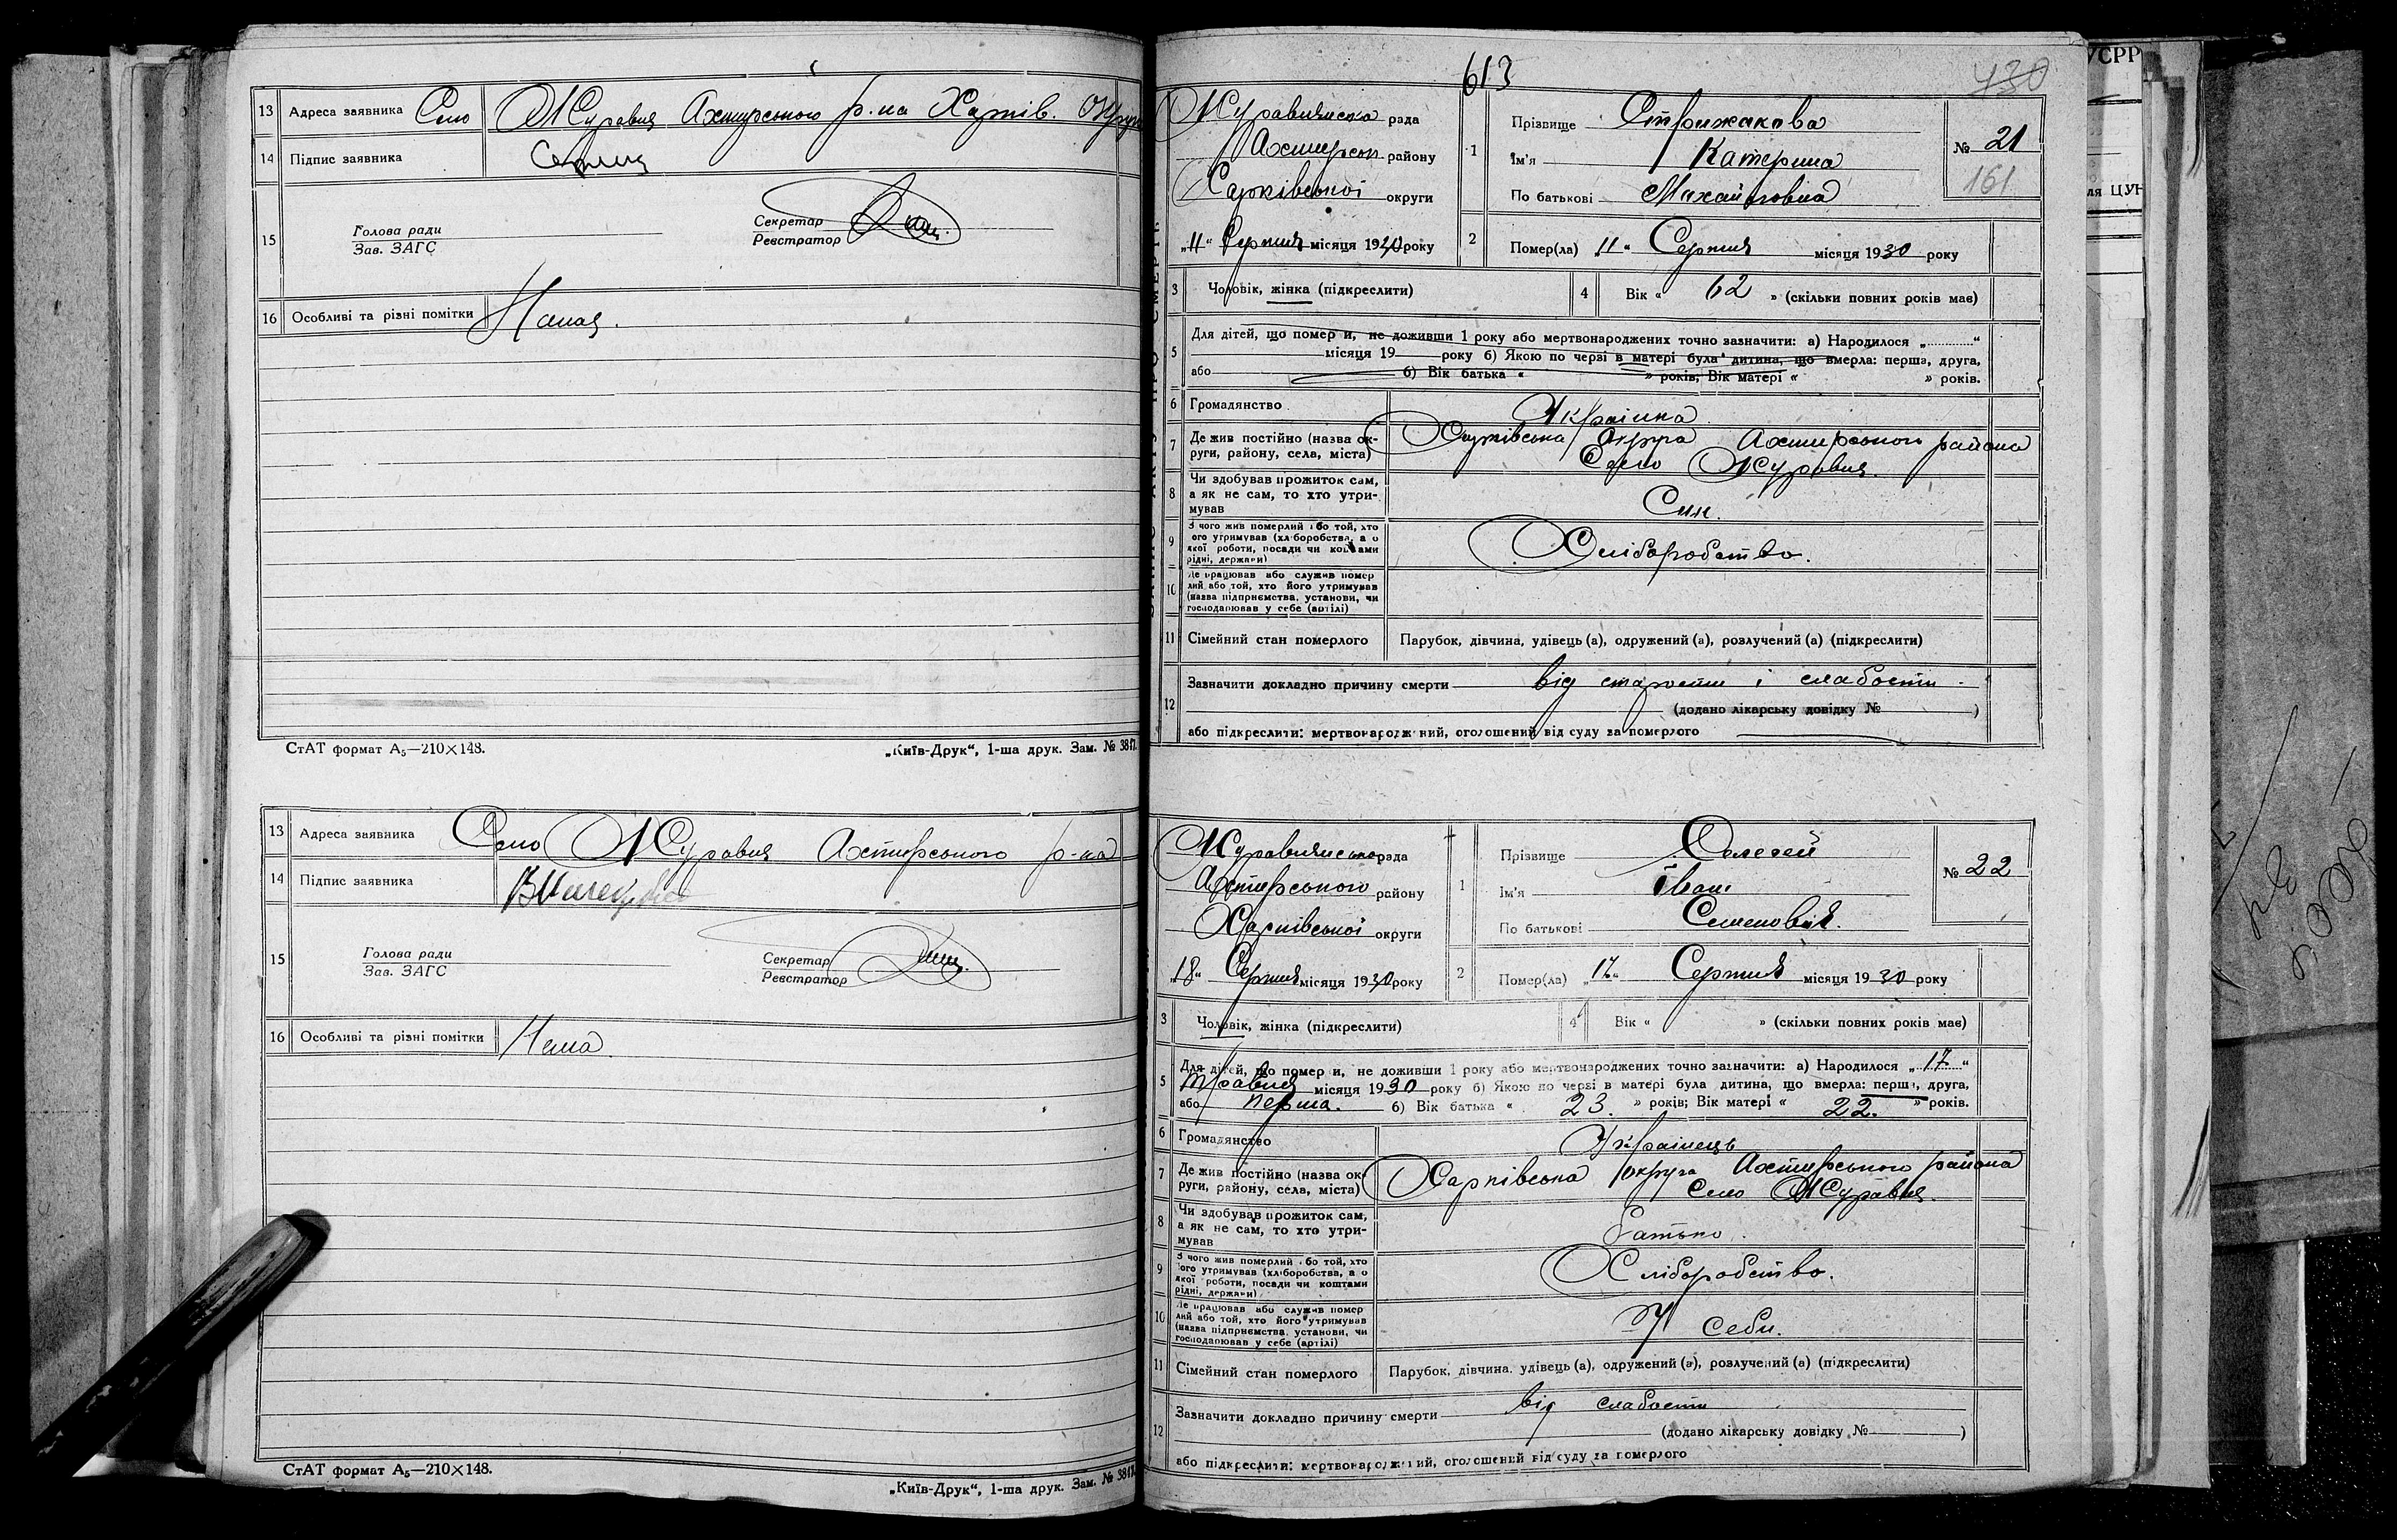 13 Адреса заявника Село Журавня Ахтирського р-на Харків. Округи
14 Підпис заявника
15 Голова ради Секретар
Зав. ЗАГС Реєстратор
16 Особливі та різні помітки Немає.
СтАТ формат А5—210×148. „Київ-Друк“, 1-ша друк. Зам. № 381
13 Адреса заявника Село Журавня Ахтирського р-на
14 Підпис заявника
15 Голова ради Секретар
Зав. ЗАГС Реєстратор
16 Особливі та різні помітки Нема.
СтАТ формат А5—210×148.
„Київ-Друк“, 1-ша друк. Зам. № 381
613
430
Журавнянська рада
Ахтирськ району
Харківської округи
„11“ Серпня місяця 1930 року
1 Прізвище Стрижакова
Ім'я Катерина
По батькові Михайловна
№ 21
161
2 Помер(ла) „11“ Серпня місяця 1930 року
3 Чоловік, жінка (підкреслити) 4 Вік « 62 » (скільки повних років має)
5 Для дітей, що помер и, не доживши 1 року або мертвонароджених точно зазначити: а) Народилося „ “
місяця 19 року б) Якою по черзі в матері була дитина, що вмерла: перша, друга,
або б) Вік батька « » років; Вік матері « » років.
6 Громадянство Українка
7 Де жив постійно (назва округи, району, села, міста) Харківська Округа Ахтирського района
Село Журавня.
8 Чи здобував прожиток сам,
а як не сам, то хто утри-
мував Син.
9 З чого жив померлий або той, хто
його утримував (хліборобства, а о
якої роботи, посади чи коштами
рідні, держави) Хліборобство.
10 Де працював або служив помер
лий або той, хто його утримував
(назва підприємства, установи, чи
господарював у себе (артілі)
11 Сімейний стан померлого Парубок, дівчина, удівець (а), одружений (а), розлучений (а) (підкреслити)
12 Зазначити докладно причину смерти від старости і слабости
(додано лікарську довідку № )
або підкреслити: мертвонароджений, оголошений від суду за померлого
Журавнянська рада
Ахтирського району
Харківської округи
„18“ Серпня місяця 1930 року
1 Прізвище Селезей
Ім'я Іван
По батькові Семенович.
№ 22
2 Помер(ла) „17“ Серпня місяця 1930 року
3 Чоловік, жінка (підкреслити) 4 Вік « » (скільки повних років має)
5 Для дітей, що помер и, не доживши 1 року або мертвонароджених точно зазначити: а) Народилося „17“
травня місяця 1930 року б) Якою по черзі в матері була дитина, що вмерла: перша, друга,
або перша. б) Вік батька « 23. » років; Вік матері « 22. » років.
6 Громадянство Українець
7 Де жив постійно (назва округи, району, села, міста) Харківська округа Ахтирського района
Село Журавня.
8 Чи здобував прожиток сам,
а як не сам, то хто утри-
мував Батько.
9 З чого жив померлий або той, хто
його утримував (хліборобства, а о
якої роботи, посади чи коштами
рідні, держави) Хліборобство.
10 Де працював або служив помер
лий або той, хто його утримував
(назва підприємства, установи, чи
господарював у себе (артілі) У себи.
11 Сімейний стан померлого Парубок, дівчина, удівець (а), одружений (а), розлучений (а) (підкреслити)
12 Зазначити докладно причину смерти від слабости
(додано лікарську довідку № )
або підкреслити: мертвонароджений, оголошений від суду за померлого
УСРР